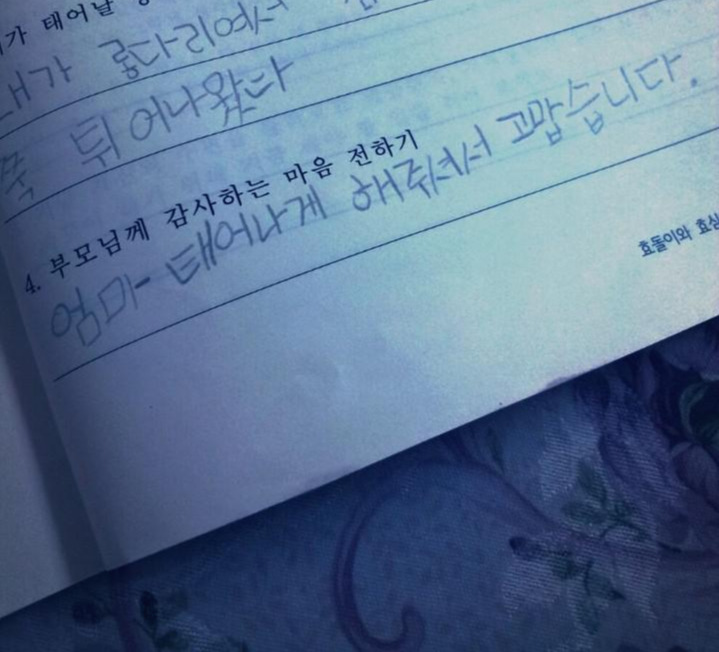 가 태어날
내가 롱다리여서
쭉 튀어나왔다
4. 부모님께 감사하는 마음 전하기
엄마- 태어나게 해주셔서 고맙습니다.
효돌이와 효심